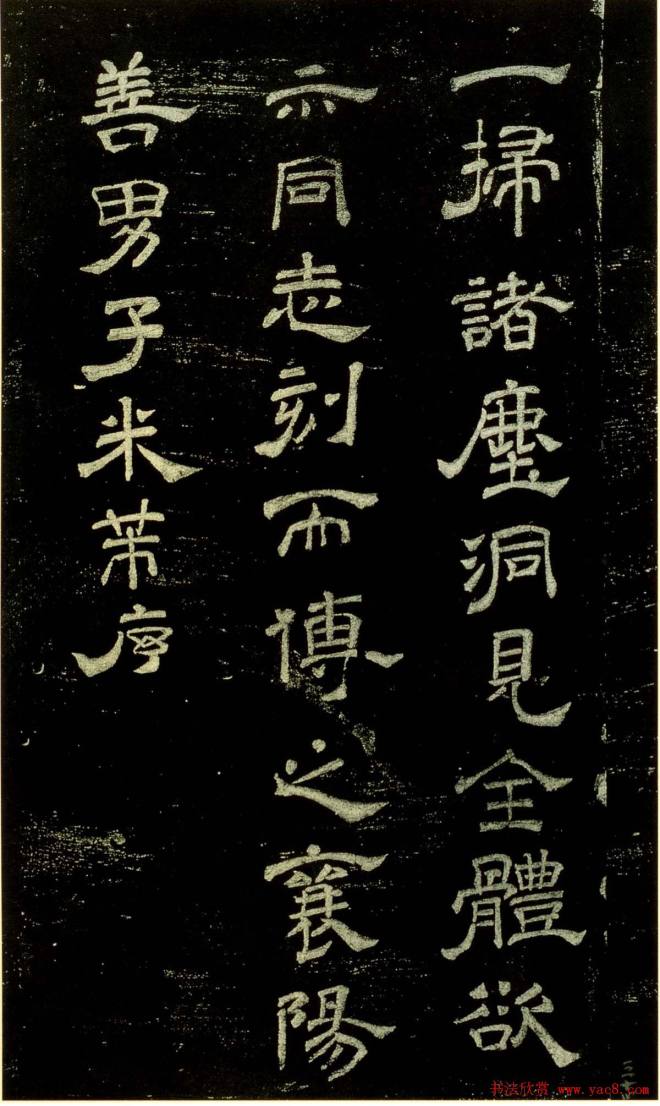 一掃諸塵洞見全體欲
示同志刻而博之襄陽
善男子米芾序
书法欣赏 www.yac8.com